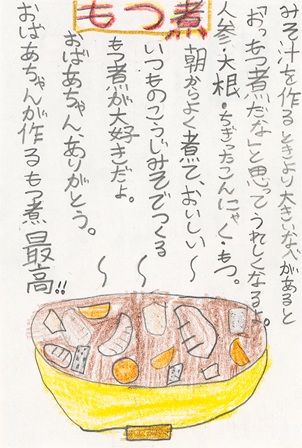 もつ煮
みそ汁を作るときより大きいなべがあると
「おっもつ煮だな」と思ってうれしくなるよ。
人参・大根・ちぎったこんにゃく・もつ。
朝からよく煮て、おいしい〜
いつものこうじみそでつくる
もつ煮が大好きだよ。
おばあちゃん、ありがとう。
おばあちゃんが作るもつ煮最高!!